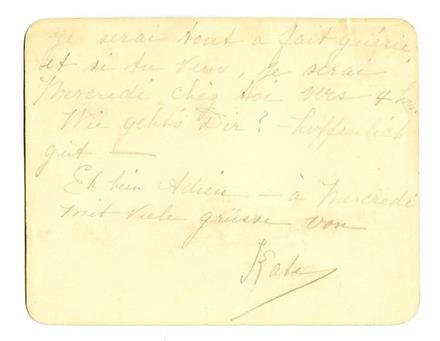 je serai tout a fait guérie
et si tu veux, je serai
Mercredi chez toi vers 4 hrs.
Wie gehts Dir? - hoffenlich
gut —
Eh bien Adieu — à Mercredi
mit viele grüsse von
Kate